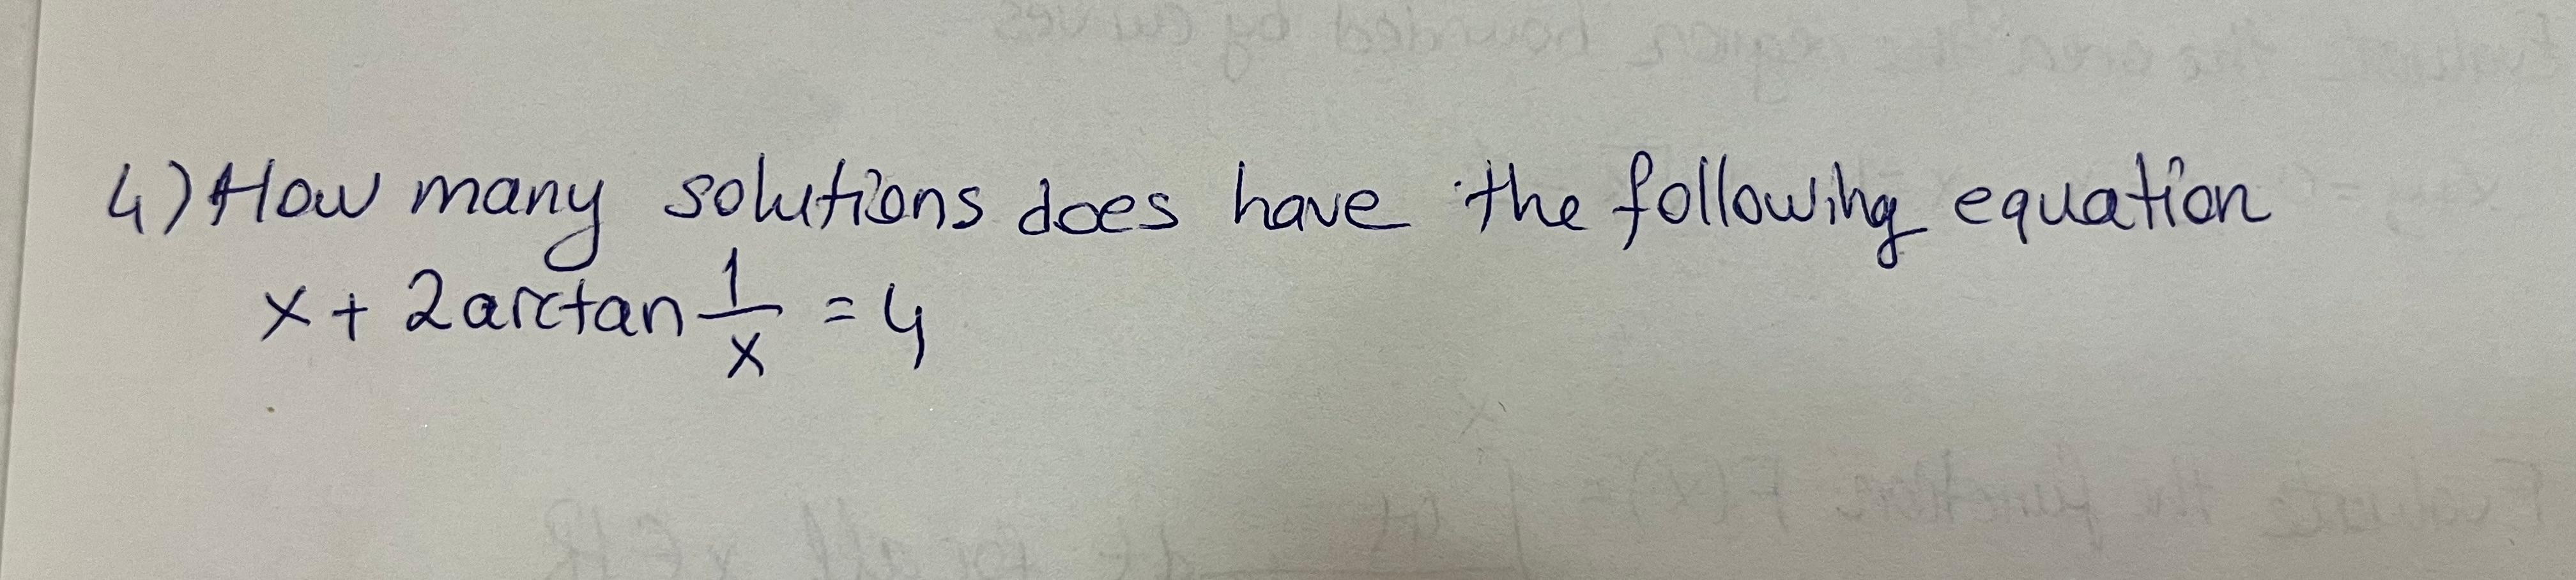 4) How many solutions does have the following equation
x + 2 arctan 1/x = 4